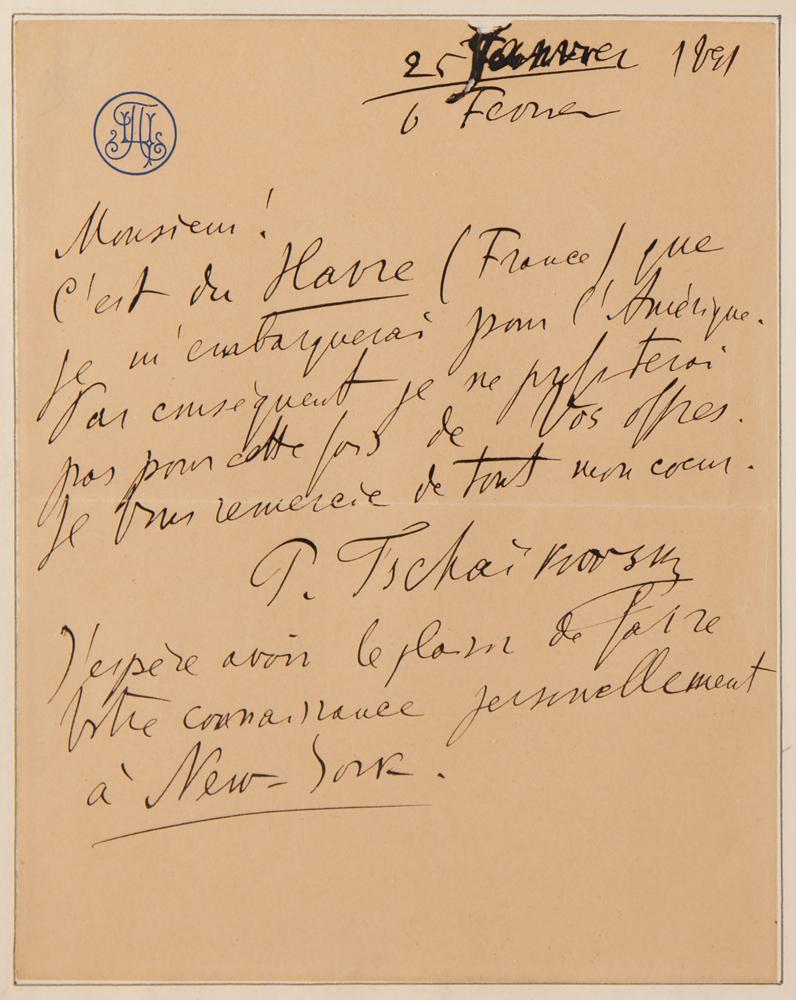 25 Janvier 1891
6 Fevrier
Monsieur!
C'est du Havre (France) que
je m'embarquerai pour l'Amérique.
Par conséquent je ne profiterai
pas pour cette fois de Vos offres.
Je Vous remercie de tout mon coeur.
P. Tschaïkovsky
J'espère avoir le plaisir de faire
Votre connaissance personellement
à New-York.